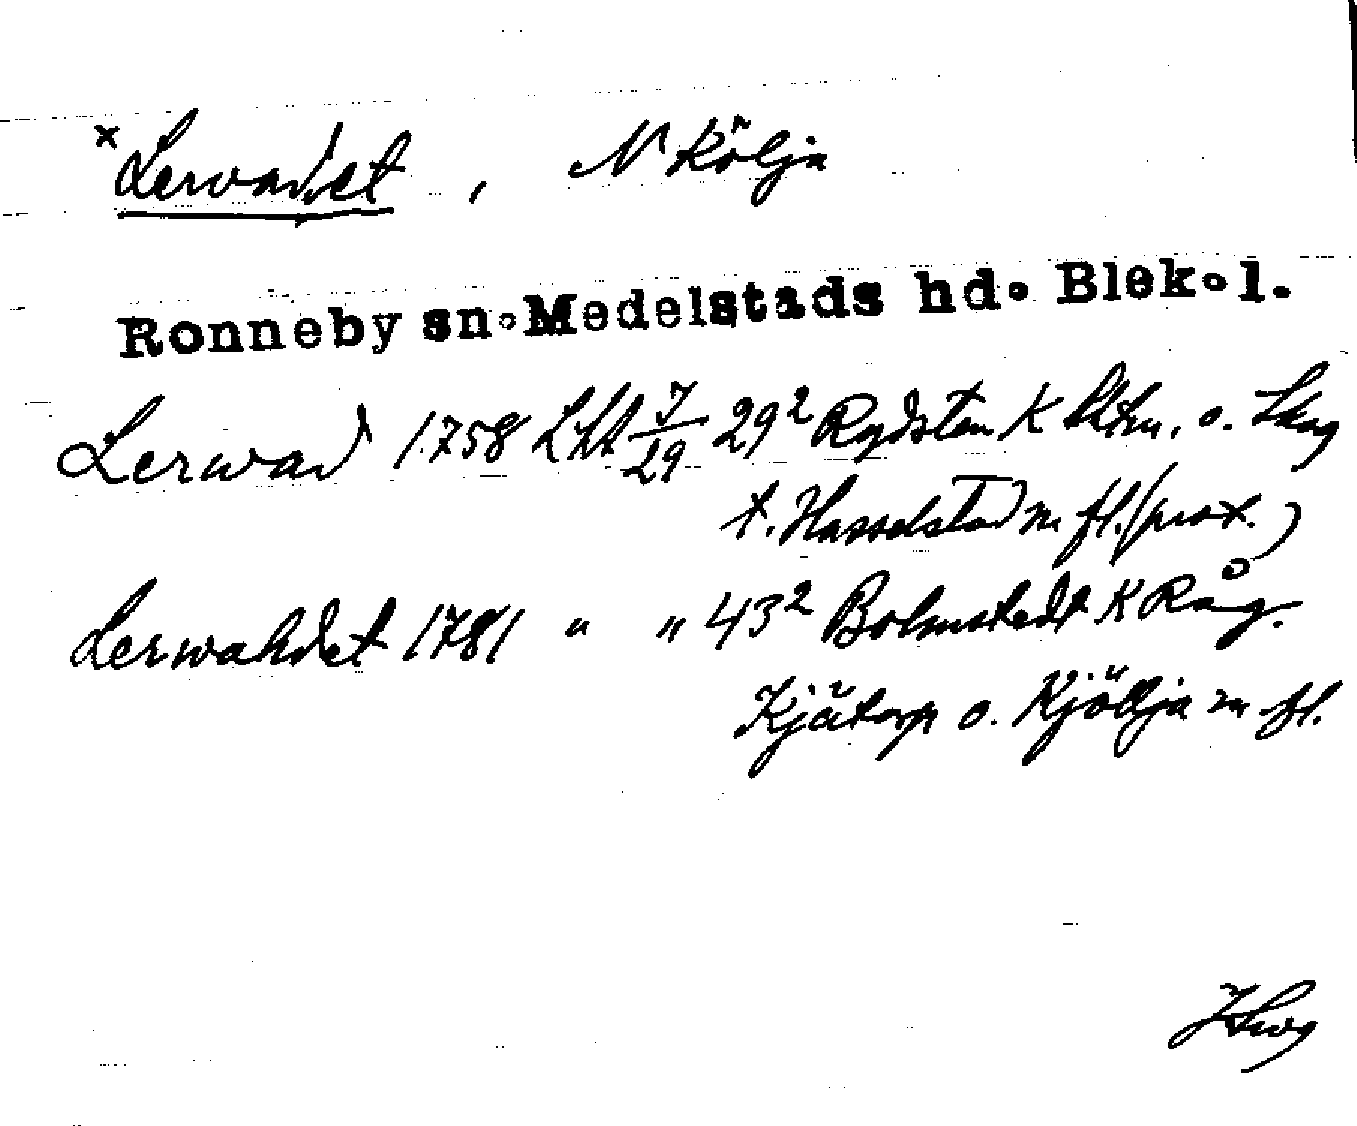 × Lervadet, N Kölja
Ronneby sn. Medelstads hd. Blek. l.
Lerwad 1758 LKA 7/29 29² Rydsten K o. Skog
t. Hasselstad m fl. (prot.)
Lerwahdet 1781 " " 43² Bolmstedt K Råg.
Kjätorp o. Kjöllja m fl.